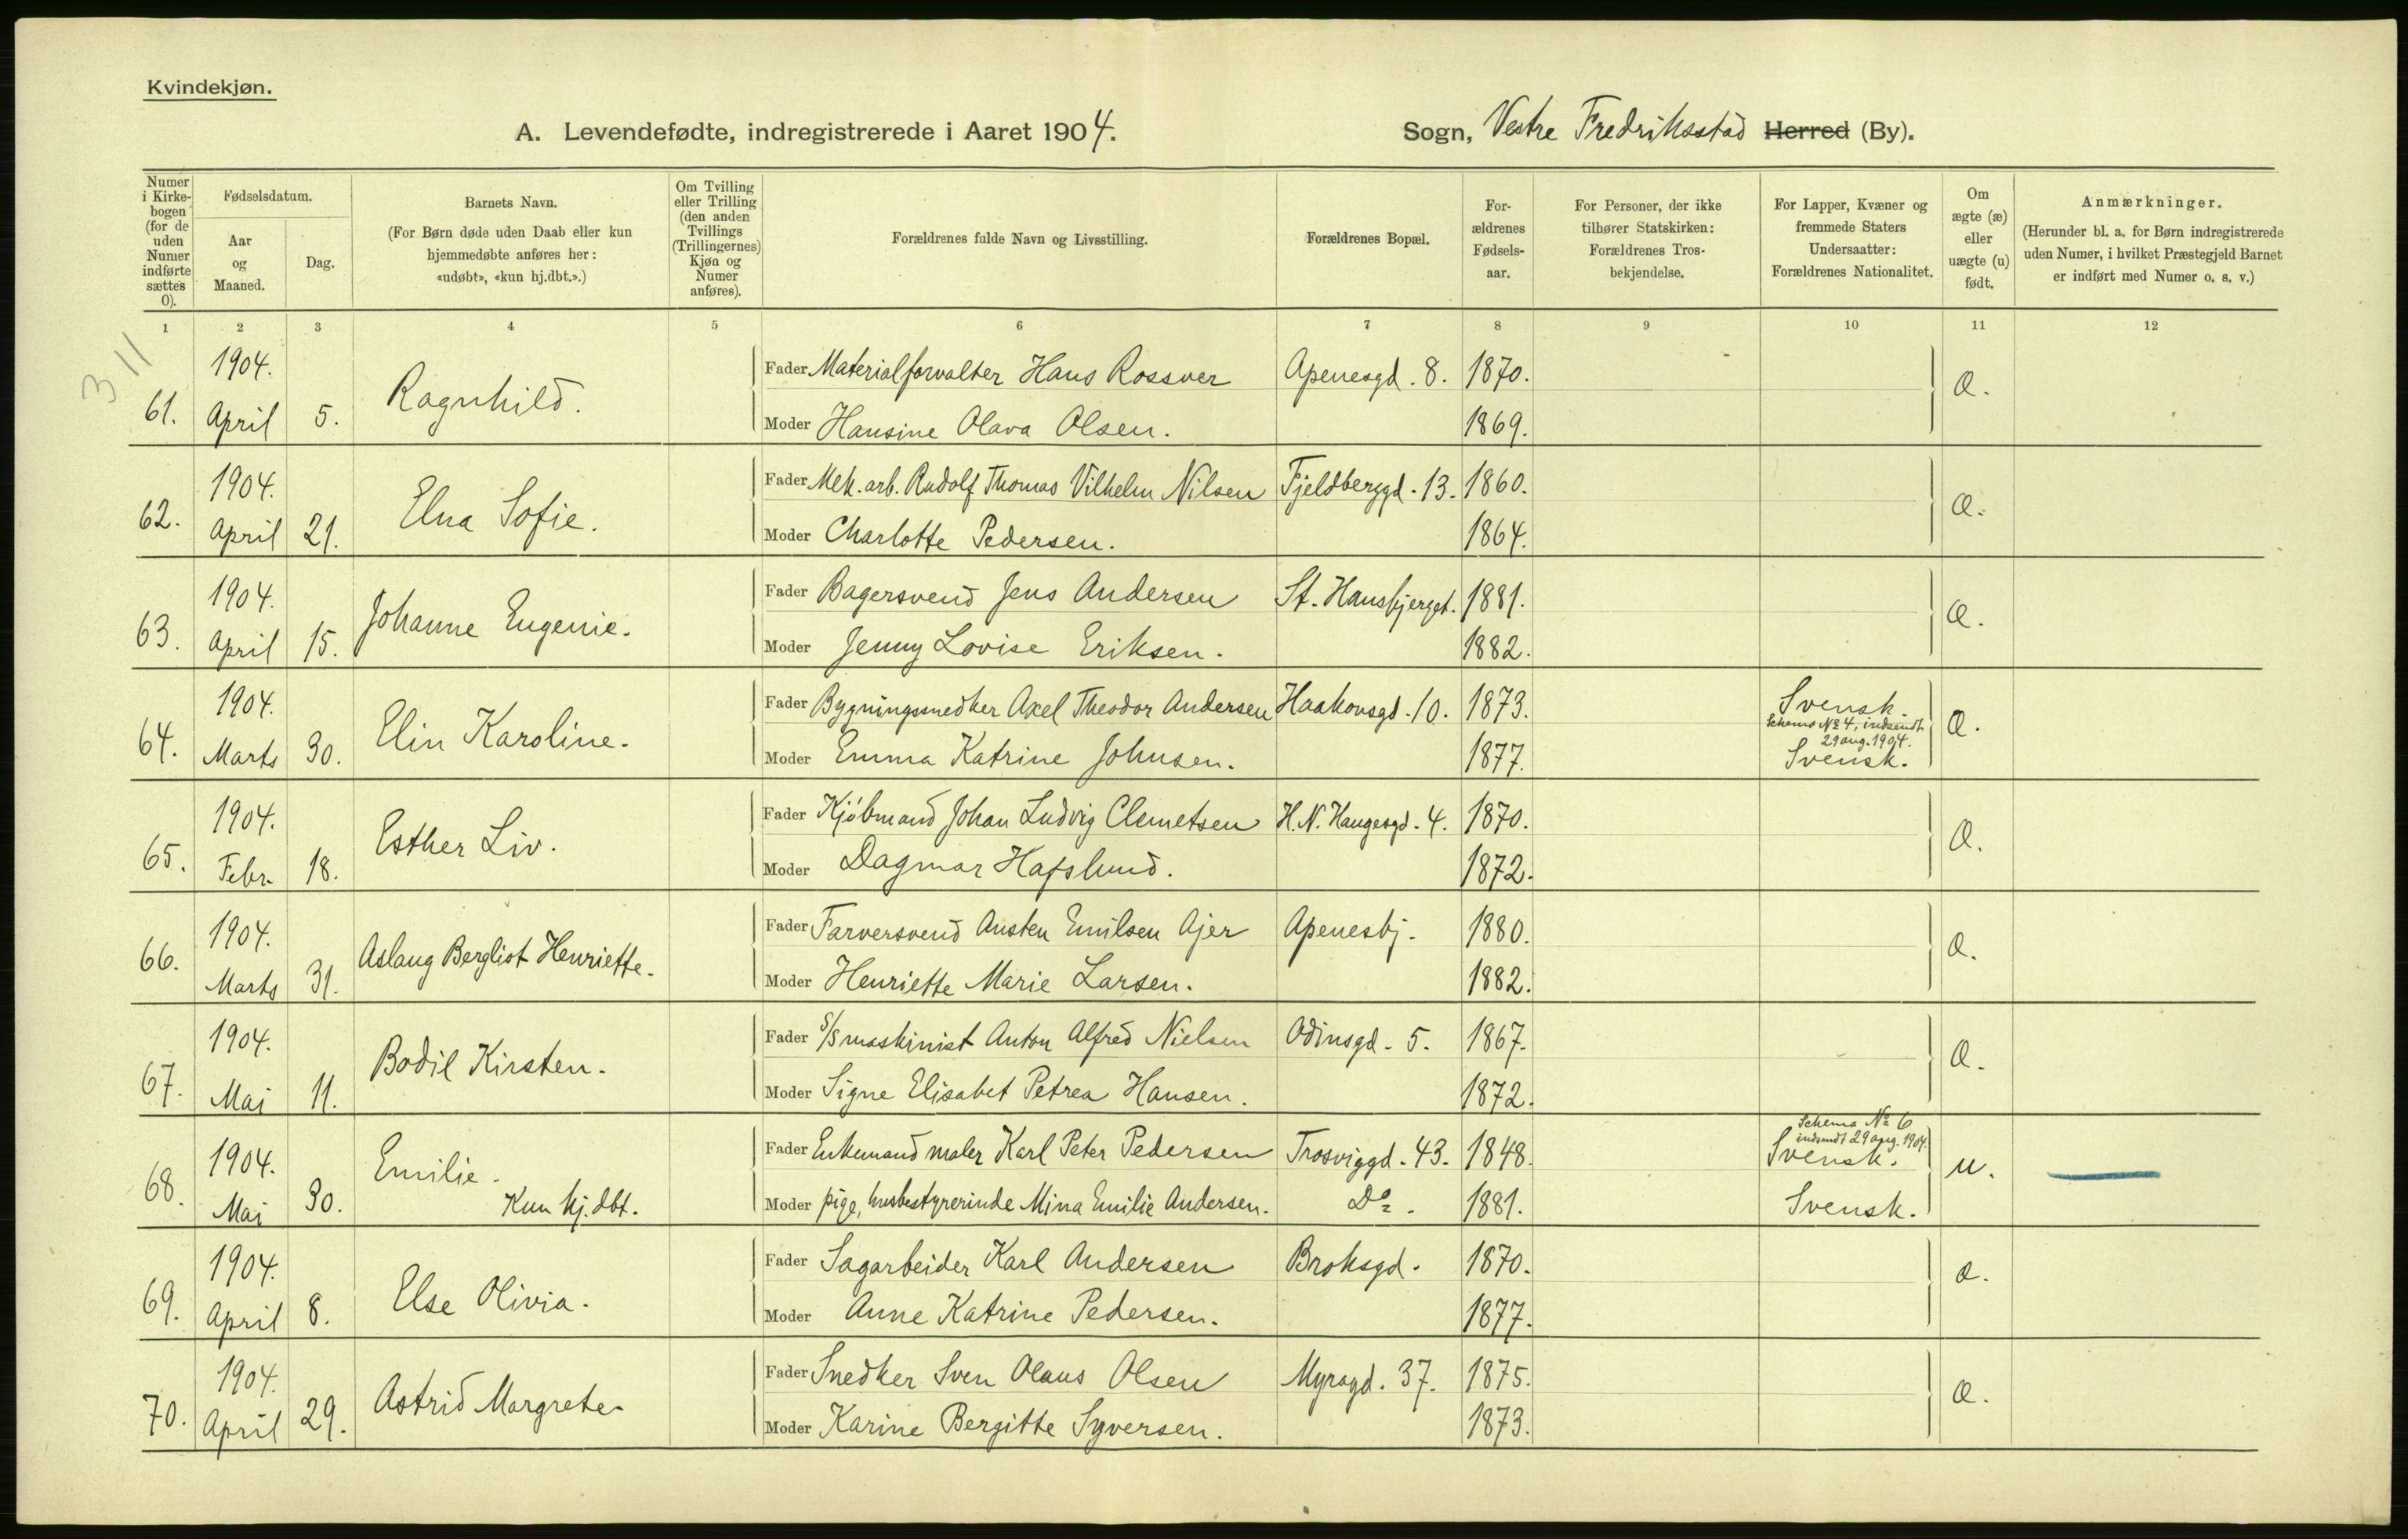 Kvindekjøn.
A. Levendefødte, indregistrerede i Aaret 1904. Sogn, Vestre Fredriksstad Herred (By).
Numer i Kirkebogen (for de uden Numer indførte sættes 0).
Fødselsdatum.
Aar og Maaned.
Dag.
Barnets Navn.
(For Børn døde uden Daab eller kun hjemmedøbte anføres her: «udøbt», «kun hj.dbt.».)
Om Tvilling eller Trilling (den anden Tvillings (Trillingernes) Kjøn og Numer anføres).
Forældrenes fulde Navn og Livsstilling.
Forældrenes Bopæl.
Forældrenes Fødselsaar.
For Personer, der ikke tilhører Statskirken: Forældrenes Trosbekjendelse.
For Lapper, Kvæner og fremmede Staters Undersaatter: Forældrenes Nationalitet.
Om ægte (æ) eller uægte (u) født.
Anmærkninger.
(Herunder bl. a. for Børn indregistrerede uden Numer, i hvilket Præstegjeld Barnet er indført med Numer o. s. v.)
1 2 3 4 5 6 7 8 9 10 11 12
311
61. 1904. April 5. Ragnhild.
Fader Materialforvalter Hans Rossver Apenesgd. 8. 1870. æ.
Moder Hansine Olava Olsen. 1869.
62. 1904. April 21. Elna Sofie.
Fader Mek. arb. Rudolf Thomas Vilhelm Nilsen Fjeldberggd. 13. 1860. æ.
Moder Charlotte Pedersen. 1864.
63. 1904. April 15. Johanne Eugenie.
Fader Bagersvend Jens Andersen St. Hansbjerget. 1881. æ.
Moder Jenny Lovise Eriksen. 1882.
64. 1904. Marts 30. Elin Karoline.
Fader Bygningssnedker Axel Theodor Andersen Haakonsgd. 10. 1873. Svensk. æ.
Schema No 4, indsendt 29 aug. 1904.
Moder Emma Katrine Johnsen. 1877. Svensk.
65. 1904. Febr. 18. Esther Liv.
Fader Kjøbmand Johan Ludvig Clemetsen H. N. Haugesgd. 4. 1870. æ.
Moder Dagmar Hafslund. 1872.
66. 1904. Marts 31. Aslaug Bergliot Henriette.
Fader Farversvend Austen Emilsen Ajer Apenesbj. 1880. æ.
Moder Henriette Marie Larsen. 1882.
67. 1904. Mai 11. Bodil Kirsten.
Fader S/S maskinist Anton Alfred Nielsen Odinsgd. 5. 1867. æ.
Moder Signe Elisabet Petrea Hansen. 1872.
68. 1904. Mai 30. Emilie. Kun hj. dbt.
Schema No 6 indsendt 29 aug. 1904.
Fader Enkemand maler Karl Peter Pedersen Trosviggd. 43. 1848. Svensk. u.
Moder pige, husbestyrerinde Mina Emilie Andersen. Do. 1881. Svensk.
69. 1904. April 8. Else Olivia.
Fader Sagarbeider Karl Andersen Broksgd. 1870. æ.
Moder Anne Katrine Pedersen. 1877.
70. 1904. April 29. Astrid Margrete.
Fader Snedker Sven Olaus Olsen Myragd. 37. 1875. æ.
Moder Karine Bergitte Syversen. 1873.